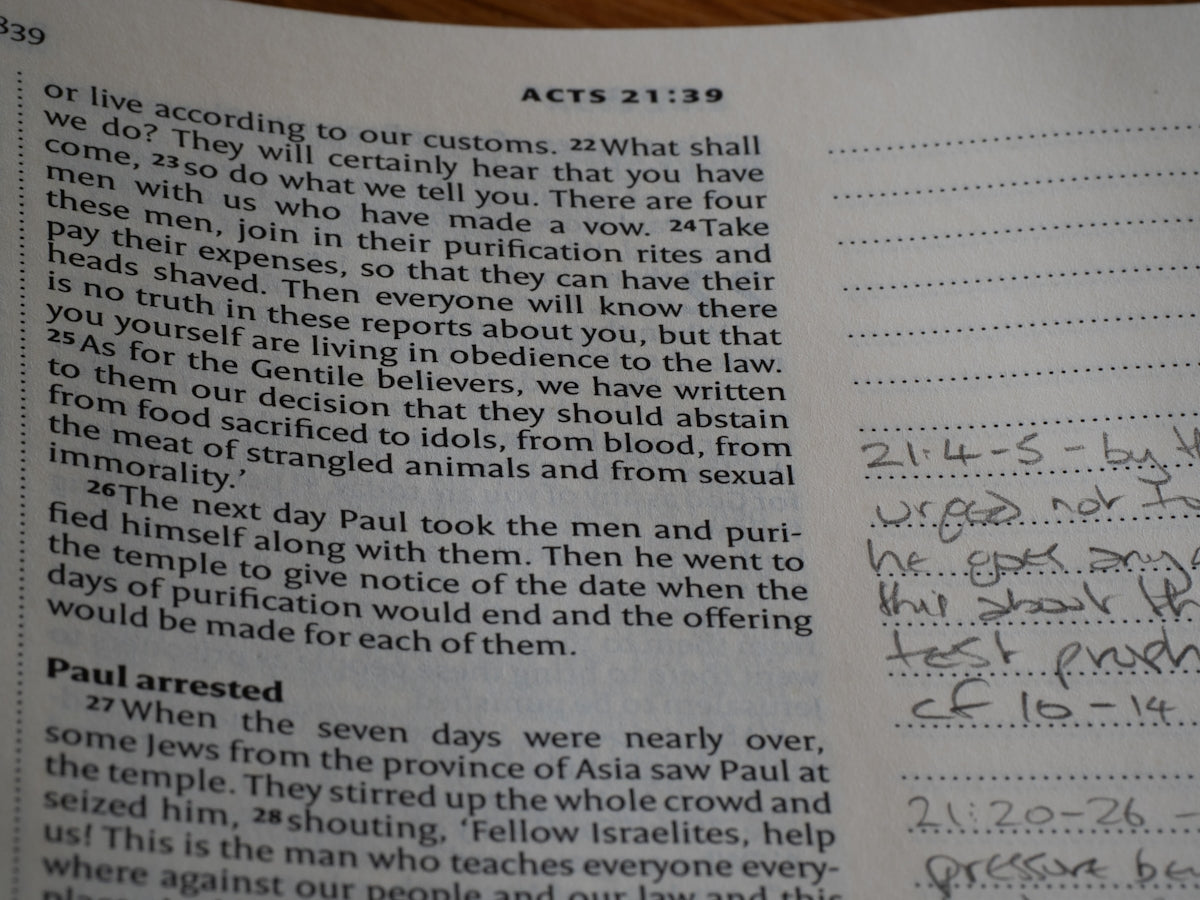 339
ACTS 21:39
or live according to our customs. 22 What shall
we do? They will certainly hear that you have
come, 23 so do what we tell you. There are four
men with us who have made a vow. 24 Take
these men, join in their purification rites and
pay their expenses, so that they can have their
heads shaved. Then everyone will know there
is no truth in these reports about you, but that
you yourself are living in obedience to the law.
25 As for the Gentile believers, we have written
to them our decision that they should abstain
from food sacrificed to idols, from blood, from
the meat of strangled animals and from sexual
immorality.’
26 The next day Paul took the men and puri-
fied himself along with them. Then he went to
the temple to give notice of the date when the
days of purification would end and the offering
would be made for each of them.
Paul arrested
27 When the seven days were nearly over,
some Jews from the province of Asia saw Paul at
the temple. They stirred up the whole crowd and
seized him, 28 shouting, ‘Fellow Israelites, help
us! This is the man who teaches everyone every-
where against our people and our law and this
21:4-5 - by
urged not
he goes
this about
test
cf 10-14
21:20-26 -
pressure